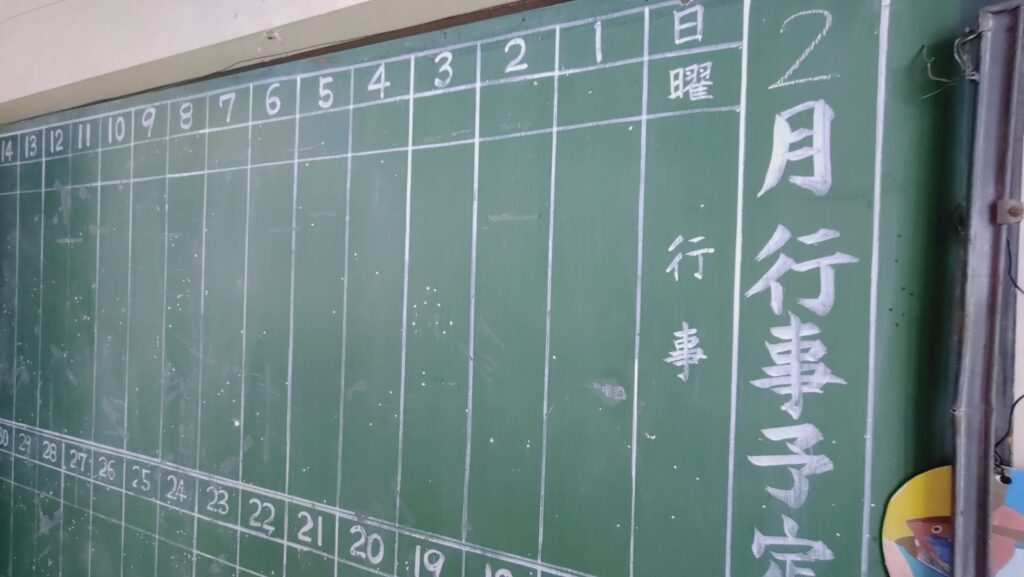 2月行事予定
日 1 2 3 4 5 6 7 8 9 10 11 12 13 14
曜
行事
19 20 21 22 23 24 25 26 27 28 29 30